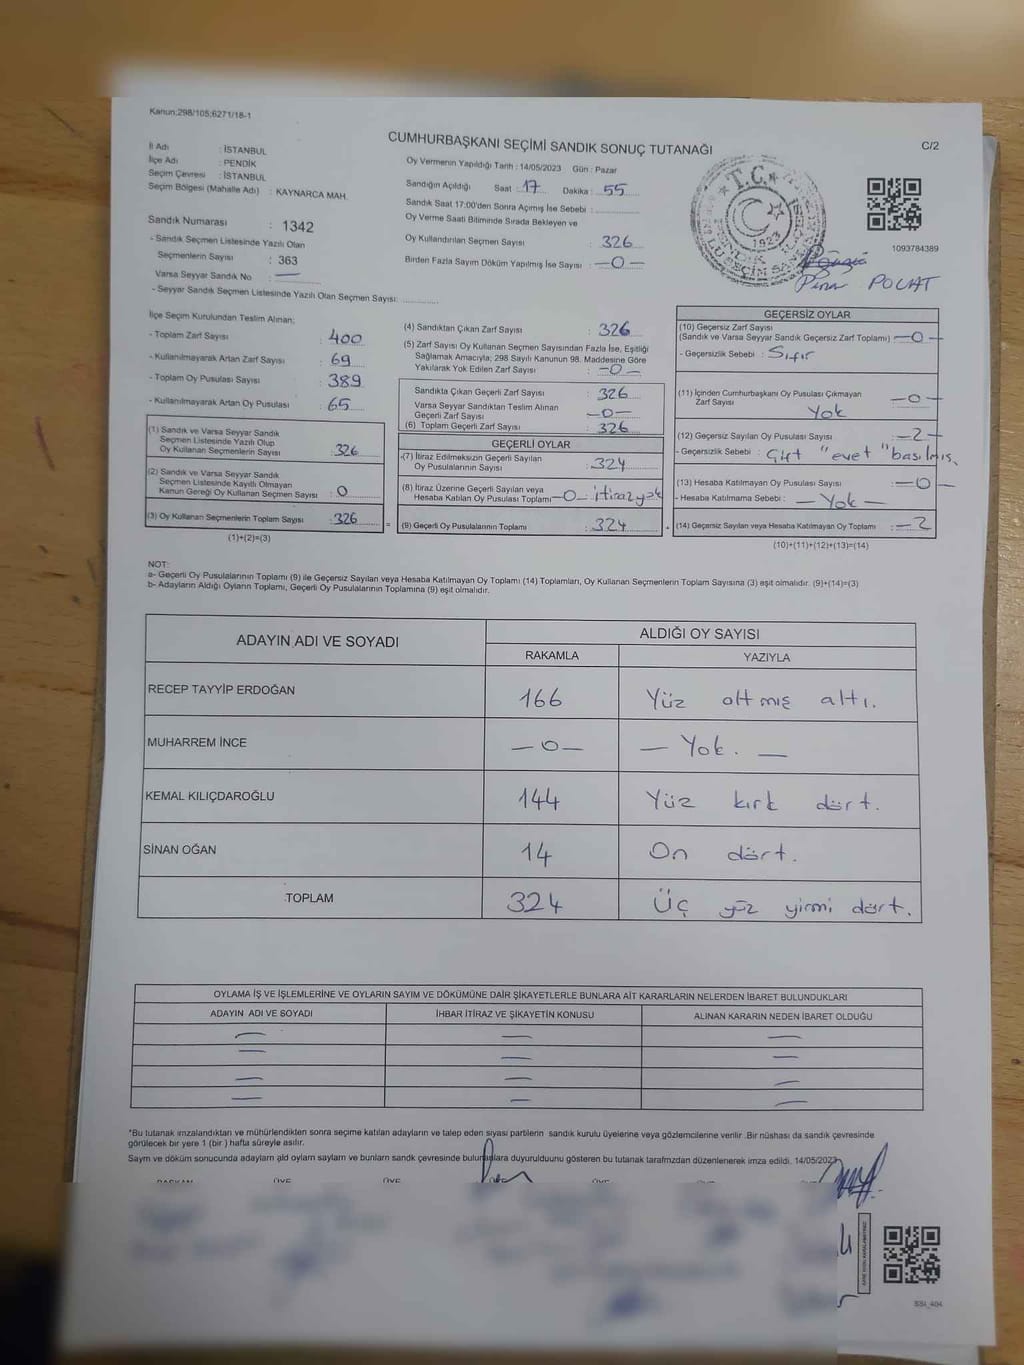 Kanun:298/105;6271/18-1
CUMHURBAŞKANI SEÇİMİ SANDIK SONUÇ TUTANAĞI
C/2
İl Adı : İSTANBUL
İlçe Adı : PENDİK
Seçim Çevresi : İSTANBUL
Seçim Bölgesi (Mahalle Adı) : KAYNARCA MAH.
Sandık Numarası : 1342
- Sandık Seçmen Listesinde Yazılı Olan
Seçmenlerin Sayısı : 363
Varsa Seyyar Sandık No : —
- Seyyar Sandık Seçmen Listesinde Yazılı Olan Seçmen Sayısı: ............
Oy Vermenin Yapıldığı Tarih : 14/05/2023 Gün : Pazar
Sandığın Açıldığı Saat : 17 Dakika : 55
Sandık Saat 17:00'den Sonra Açımış İse Sebebi : ............
Oy Verme Saati Bitiminde Sırada Bekleyen ve
Oy Kullandırılan Seçmen Sayısı : 326
Birden Fazla Sayım Döküm Yapılmış İse Sayısı : —0—
T.C.
1923
1093784389
Pınar POLAT
İlçe Seçim Kurulundan Teslim Alınan;
- Toplam Zarf Sayısı : 400
- Kullanılmayarak Artan Zarf Sayısı : 69
- Toplam Oy Pusulası Sayısı : 389
- Kullanılmayarak Artan Oy Pusulası : 65
(1) Sandık ve Varsa Seyyar Sandık
Seçmen Listesinde Yazılı Olup
Oy Kullanan Seçmenlerin Sayısı : 326
(2) Sandık ve Varsa Seyyar Sandık
Seçmen Listesinde Kayıtlı Olmayan
Kanun Gereği Oy Kullanan Seçmen Sayısı : 0
(3) Oy Kullanan Seçmenlerin Toplam Sayısı : 326 =
(1)+(2)=(3)
(4) Sandıktan Çıkan Zarf Sayısı : 326
(5) Zarf Sayısı Oy Kullanan Seçmen Sayısından Fazla İse, Eşitliği
Sağlamak Amacıyla; 298 Sayılı Kanunun 98. Maddesine Göre
Yakılarak Yok Edilen Zarf Sayısı : —0—
Sandıkta Çıkan Geçerli Zarf Sayısı : 326
Varsa Seyyar Sandıktan Teslim Alınan
Geçerli Zarf Sayısı : —0—
(6) Toplam Geçerli Zarf Sayısı : 326
GEÇERLİ OYLAR
-(7) İtiraz Edilmeksizin Geçerli Sayılan
Oy Pusulalarının Sayısı : 324
(8) İtiraz Üzerine Geçerli Sayılan veya
Hesaba Katılan Oy Pusulası Toplamı —0— itiraz yok
(9) Geçerli Oy Pusulalarının Toplamı : 324 +
GEÇERSİZ OYLAR
(10) Geçersiz Zarf Sayısı
(Sandık ve Varsa Seyyar Sandık Geçersiz Zarf Toplamı) —0—
- Geçersizlik Sebebi : Sıfır
(11) İçinden Cumhurbaşkanı Oy Pusulası Çıkmayan
Zarf Sayısı —0—
Yok
(12) Geçersiz Sayılan Oy Pusulası Sayısı : —2—
- Geçersizlik Sebebi : Çift "evet" basılmış.
(13) Hesaba Katılmayan Oy Pusulası Sayısı : —0—
- Hesaba Katılmama Sebebi : —Yok—
(14) Geçersiz Sayılan veya Hesaba Katılmayan Oy Toplamı : —2
(10)+(11)+(12)+(13)=(14)
NOT:
a- Geçerli Oy Pusulalarının Toplamı (9) ile Geçersiz Sayılan veya Hesaba Katılmayan Oy Toplamı (14) Toplamları, Oy Kullanan Seçmenlerin Toplam Sayısına (3) eşit olmalıdır. (9)+(14)=(3)
b- Adayların Aldığı Oyların Toplamı, Geçerli Oy Pusulalarının Toplamına (9) eşit olmalıdır.
ADAYIN ADI VE SOYADI
ALDIĞI OY SAYISI
RAKAMLA YAZIYLA
RECEP TAYYİP ERDOĞAN 166 Yüz altmış altı.
MUHARREM İNCE —0— — Yok. —
KEMAL KILIÇDAROĞLU 144 Yüz kırk dört.
SİNAN OĞAN 14 On dört.
TOPLAM 324 Üç yüz yirmi dört.
OYLAMA İŞ VE İŞLEMLERİNE VE OYLARIN SAYIM VE DÖKÜMÜNE DAİR ŞİKAYETLERLE BUNLARA AİT KARARLARIN NELERDEN İBARET BULUNDUKLARI
ADAYIN ADI VE SOYADI İHBAR İTİRAZ VE ŞİKAYETİN KONUSU ALINAN KARARIN NEDEN İBARET OLDUĞU
— — —
— — —
— — —
— — —
*Bu tutanak imzalandıktan ve mühürlendikten sonra seçime katılan adayların ve talep eden siyasi partilerin sandık kurulu üyelerine veya gözlemcilerine verilir .Bir nüshası da sandık çevresinde
görülecek bir yere 1 (bir ) hafta süreyle asılır.
Sayım ve döküm sonucunda adayların ald oyların sayların ve bunların sandk çevresinde bulunanlara duyurulduunu gösteren bu tutanak tarafmzdan düzenlenerek imza edildi. 14/05/2023
BAŞKAN ÜYE ÜYE ÜYE
SSİ_404